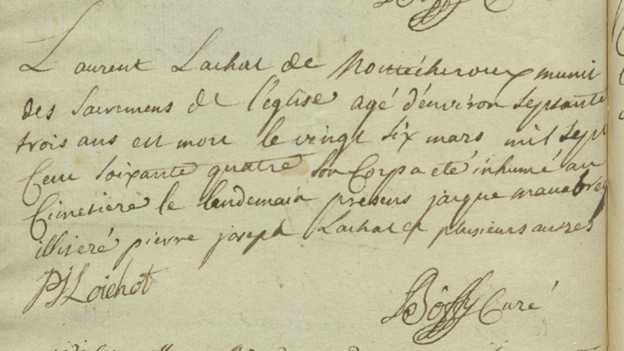 Laurent Lachat de Montécheroux munit
des Sacremens de l'église agé d'environ septante
trois ans est mort le vingt six mars mil sept
Cent soixante quatre son Corp a eté inhumé au
Cimetiere le lendemain présens jaque mauvbrey
illiteré pierre joseph Lachat et plusieurs autres
PJ Loichot
Curé